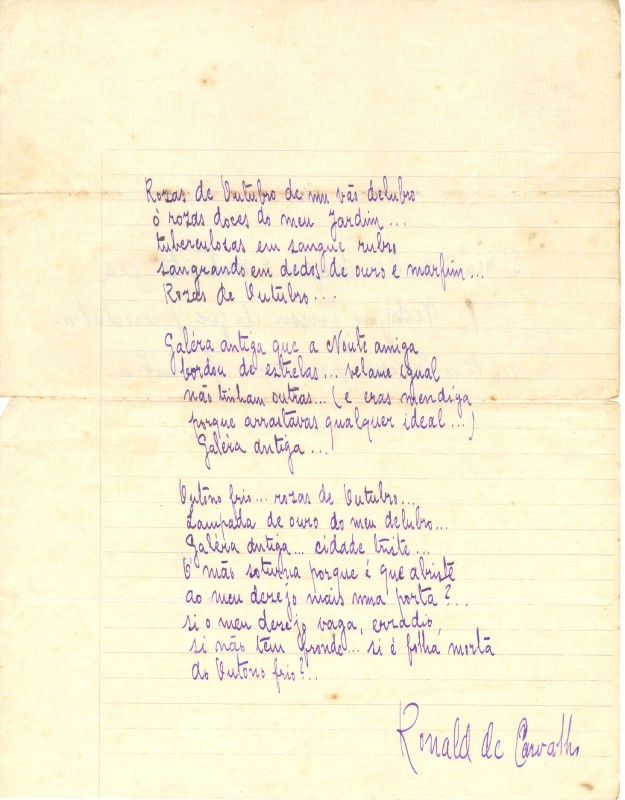 Rozas de Outubro de um vão delubro
ó rozas doces do meu Jardim...
tuberculozas em sangue rubro
sangrando em dedos de ouro e marfim...
Rozas de Outubro...
Galéra antiga que a Noute amiga
bordou de estrelas... velame igual
não tinham outras... (e eras mendiga
porque arrastavas qualquer ideal...)
Galéra antiga...
Outôno frio... rozas de Outubro...
Lampada de ouro do meu delubro...
Galéra antiga... cidade triste...
O' mão soturna porque é que abriste
ao meu dezejo mais uma porta?..
si o meu dezejo vaga, erradio,
si não tem fronde... si é folha morta
do Outôno frio?..
Ronald de Carvalho